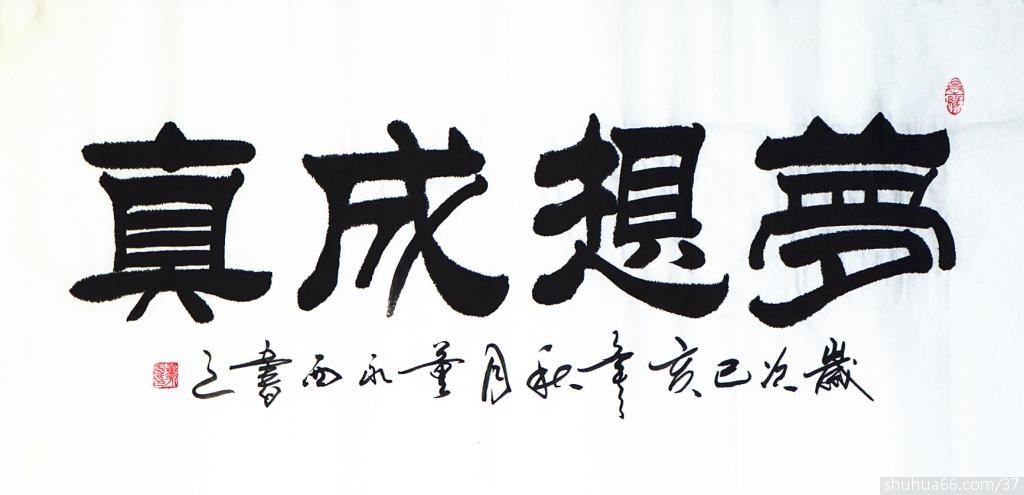 夢想成真
歲次己亥年秋月董永西書之
shuhua66.com/37